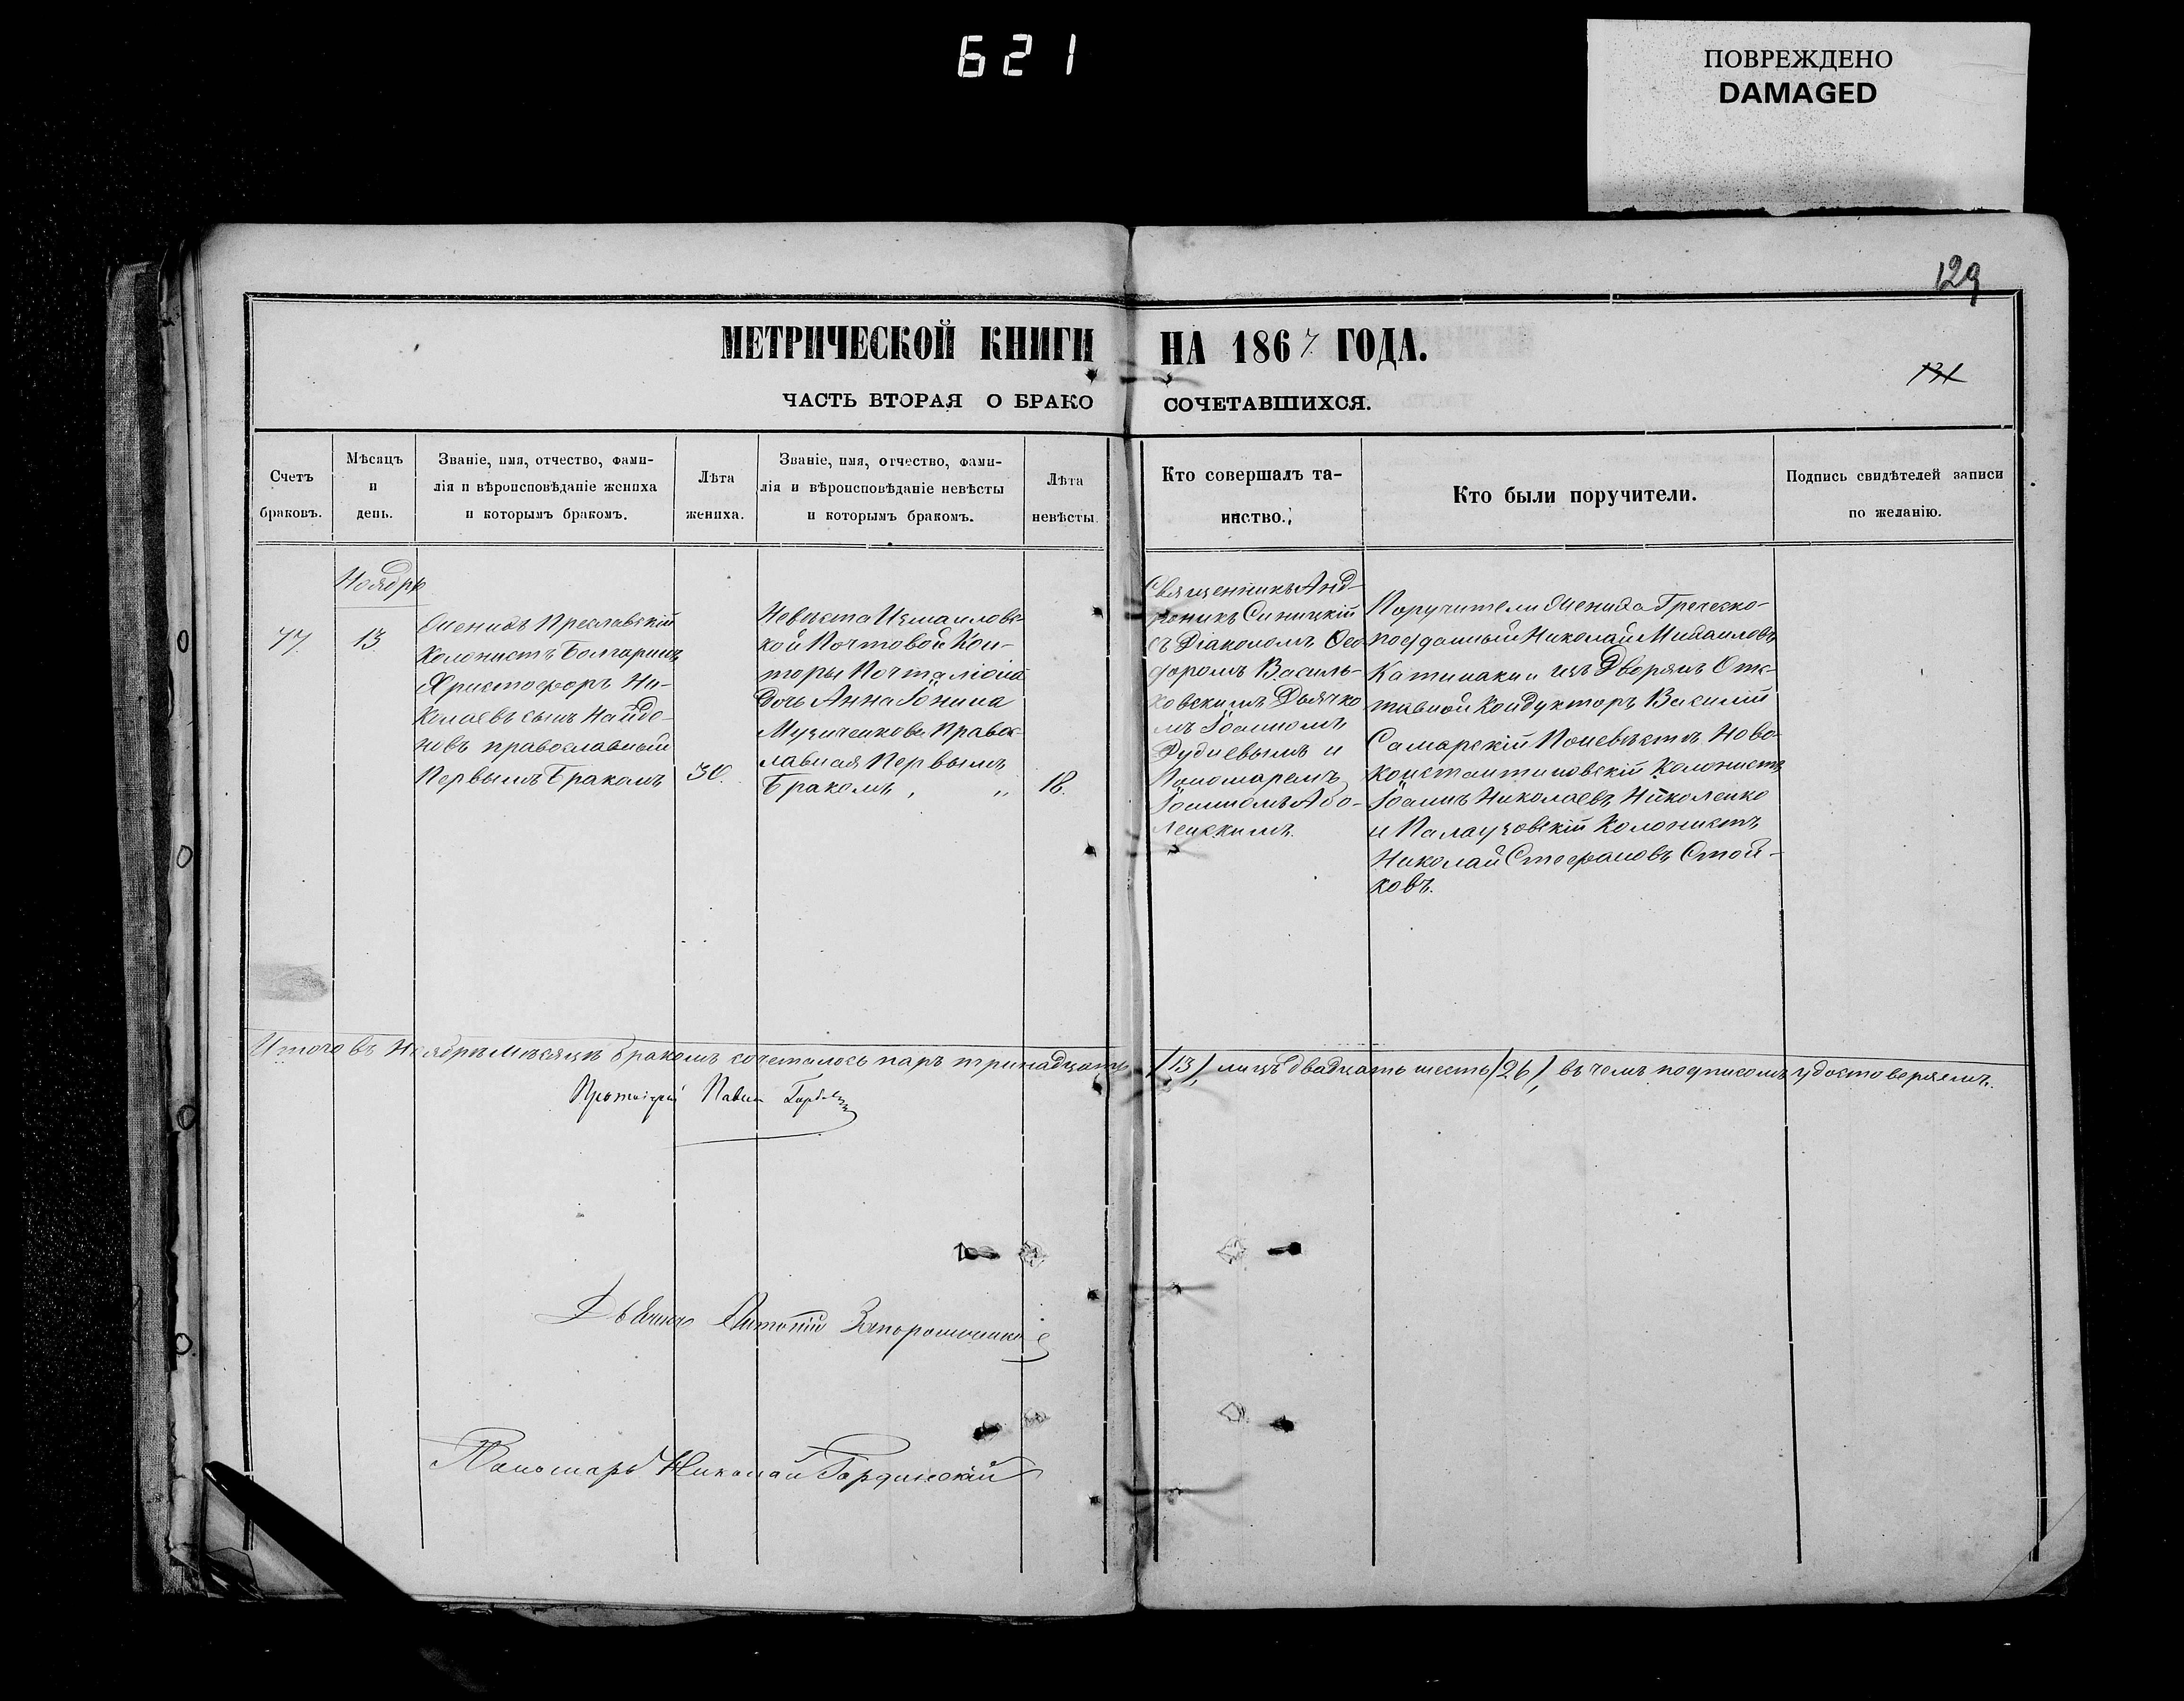 621
ПОВРЕЖДЕНО
DAMAGED
129
МЕТРИЧЕСКОЙ КНИГИ НА 1867 ГОДА.
131
ЧАСТЬ ВТОРАЯ О БРАКОСОЧЕТАВШИХСЯ.
Счетъ
браковъ.
Мѣсяцъ
и
день.
Званіе, имя, отчество, фами-
лія и вѣроисповѣданіе жениха
и которымъ бракомъ.
Лѣта
жениха.
Званіе, имя, отчество, фами-
лія и вѣроисповѣданіе невѣсты
и которымъ бракомъ.
Лѣта
невѣсты.
Кто совершалъ та-
инство.
Кто были поручители.
Подпись свидѣтелей записи
по желанію.
Ноябрь
77
13
Женихъ Преславскій
Колонистъ Болгаринъ
Христофоръ Ни-
колаевъ сынъ Найде-
новъ православный
Первымъ Бракомъ
30.
Невѣста Измаиловс-
кой Почтовой Кон-
торы Почталіона
дочь Анна Іонина
Музиченкова Правос-
лавная Первымъ
Бракомъ „
18.
Священникъ Анд-
роникъ Синицкій
съ Діакономъ Ѳео-
доромъ Василь-
ковскимъ Дьячко
мъ Іоанномъ
Рудиевымъ и
Пономаремъ
Іоанномъ Або-
ленскимъ.
Поручители Жениха Греческо-
подданный Николай Михаиловъ
Катинаки и изъ Дворянъ Отс-
тавной Кондукторъ Василій
Самарскій По невѣстѣ Ново-
константиновскій Колонистъ
Іоаннъ Николаевъ Николенко
и Палаузовскій Колонистъ
Николай Стефановъ Стой-
ковъ.
Итого въ Ноябрѣ Мѣсяцѣ бракомъ сочеталось паръ тринадцать /13/, лицъ двадцать шесть /26/, въ чемъ подписомъ удостоверяемъ.
Протоіерей Павелъ
Дьячокъ Антоній Запорошенко
Пономарь Николай Гординскій